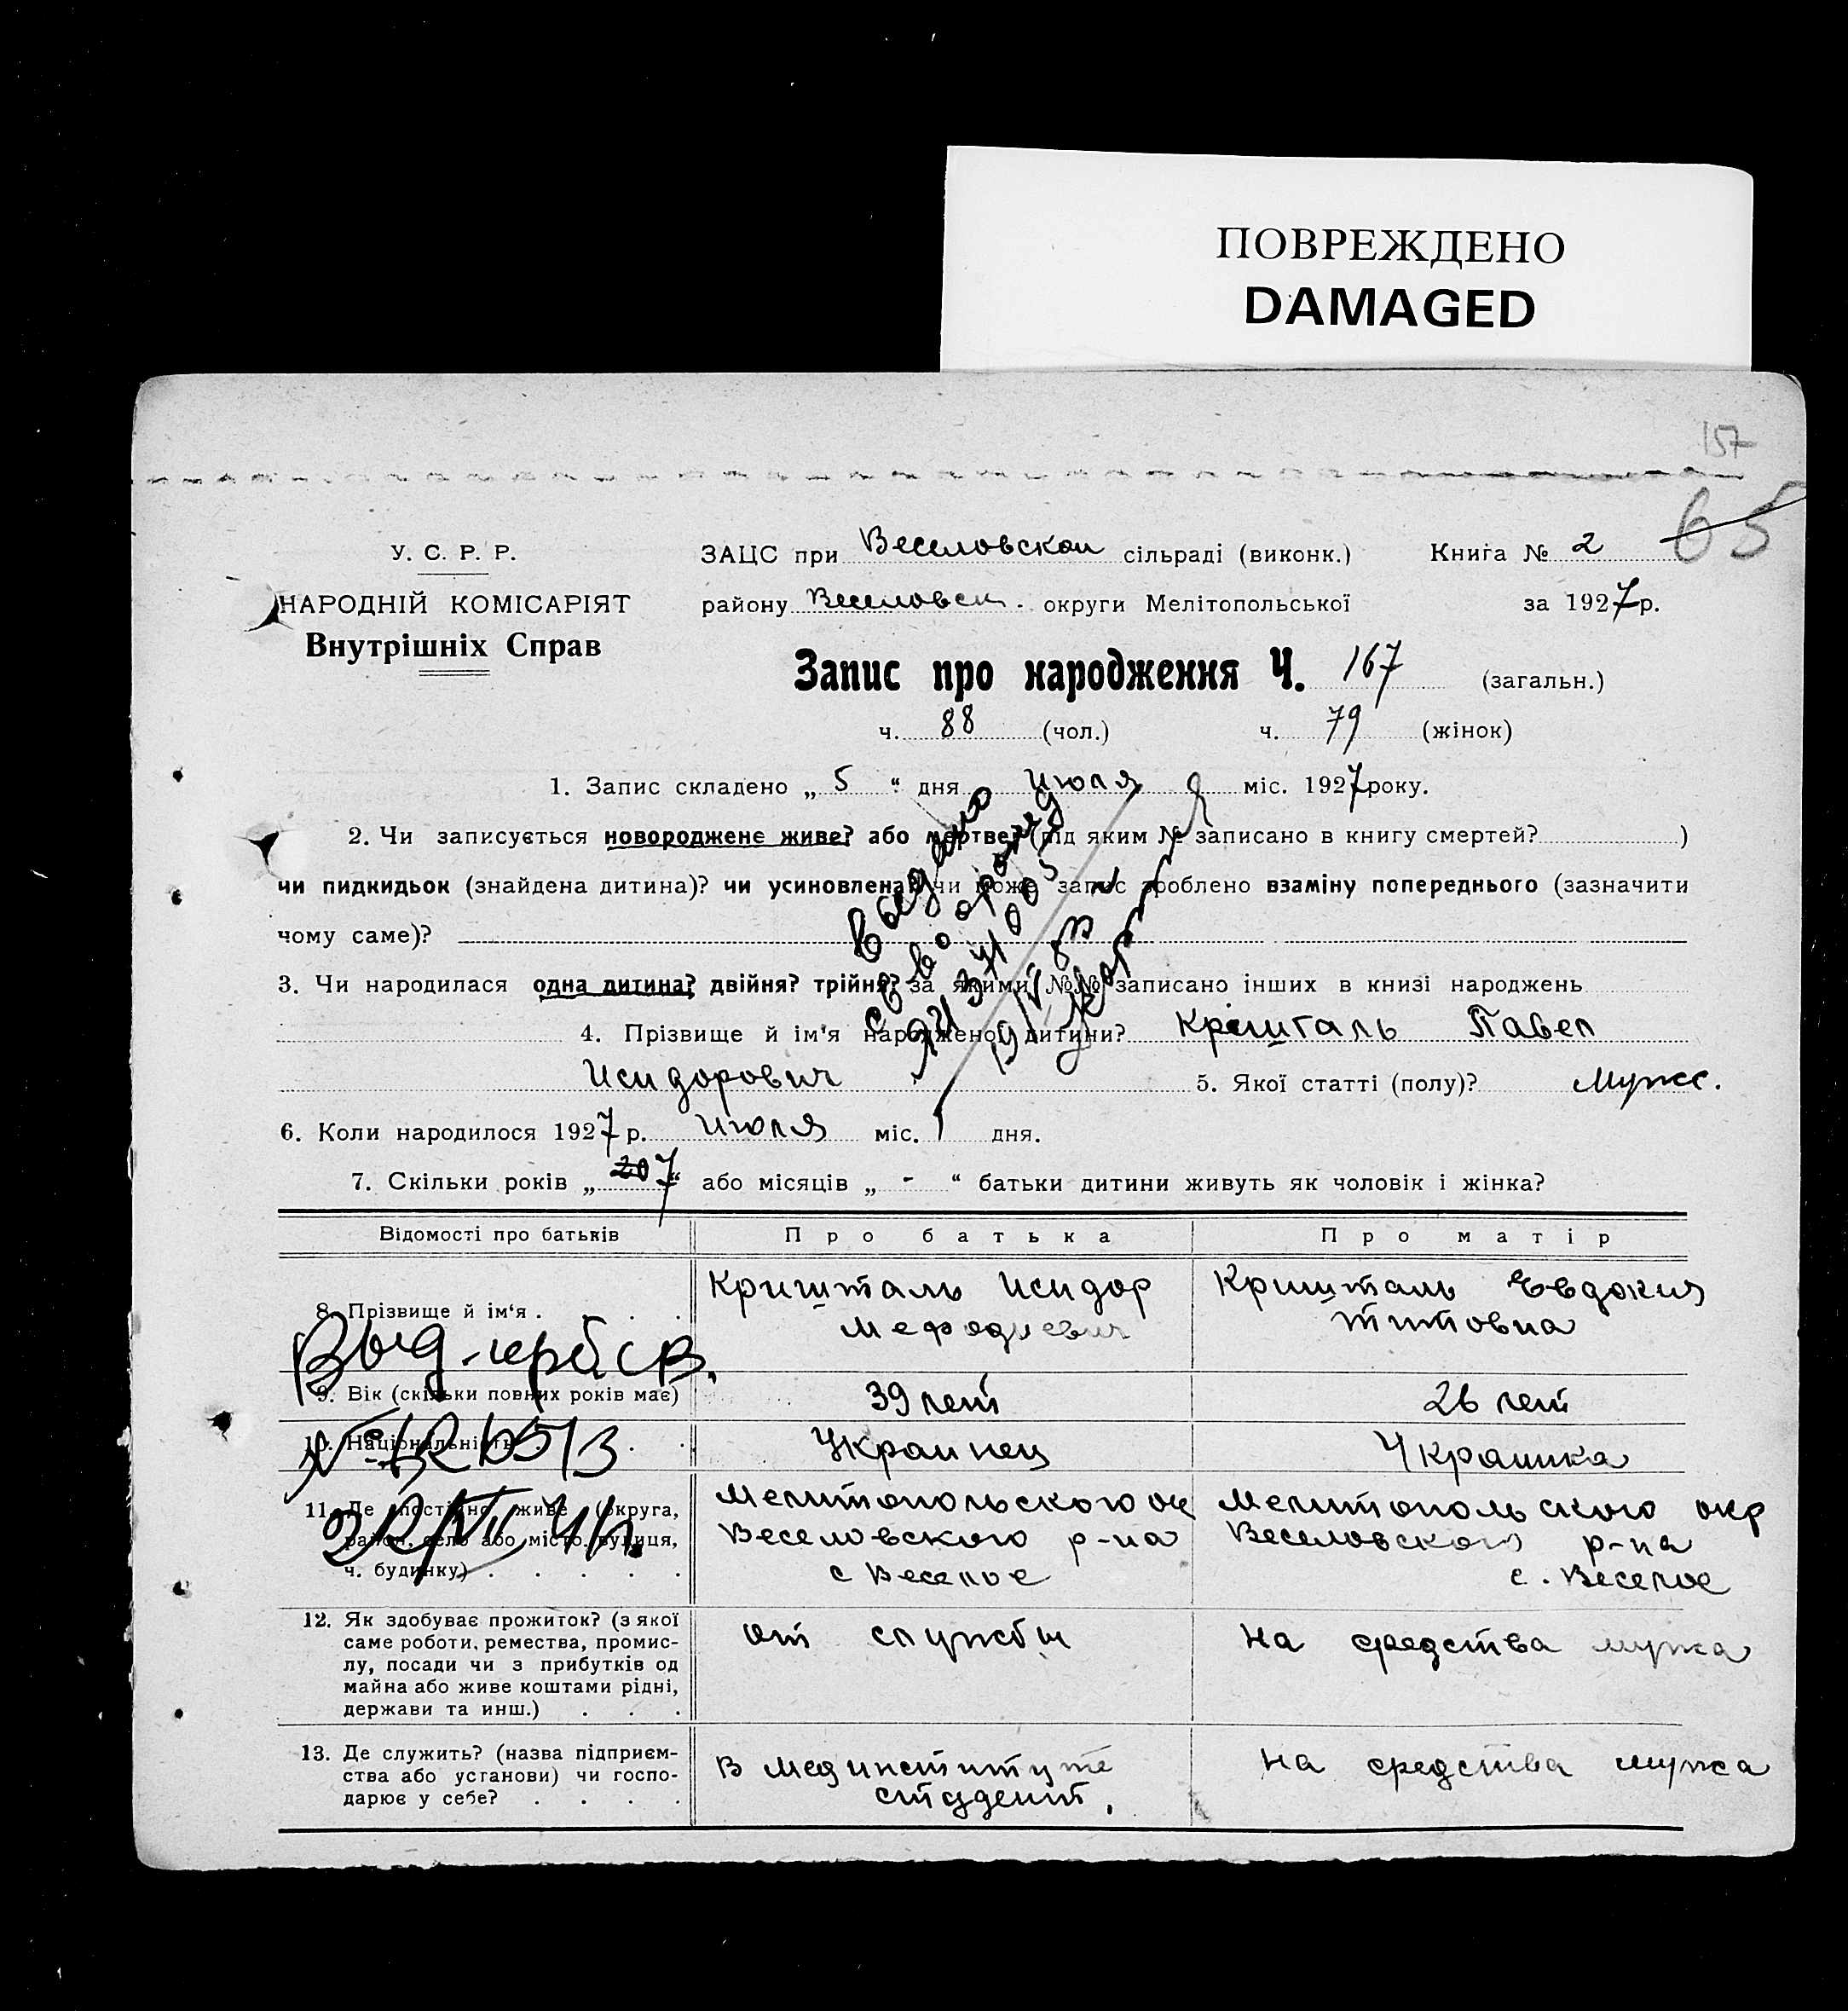 ПОВРЕЖДЕНО
DAMAGED
157
65
У. С. Р. Р.
НАРОДНІЙ КОМІСАРІЯТ
Внутрішніх Справ
ЗАЦС при Веселовской сільраді (виконк.) Книга № 2
району Веселовск. округи Мелітопольської за 1927 р.
Запис про народження Ч. 167 (загальн.)
ч. 88 (чол.) ч. 79 (жінок)
1. Запис складено „ 5 “ дня Июля міс. 1927 року.
2. Чи записується новороджене живе? або мертве? (під яким № записано в книгу смертей? )
чи пидкидьок (знайдена дитина)? чи усиновлена? чи може запис зроблено взаміну попереднього (зазначити
чому саме)?
3. Чи народилася одна дитина? двійня? трійня? за якими №№ записано інших в книзі народжень
4. Прізвище й ім'я народженої дитини? Кришталь Павел
Исидорович 5. Якої статті (полу)? Мужс.
6. Коли народилося 1927 р. Июля міс. 1 дня.
7. Скільки років „ 7 “ або місяців „ - “ батьки дитини живуть як чоловік і жінка?
выдано
Відомості про батьків Про батька Про матір
8. Прізвище й ім'я . . . . Кришталь Исидор Мефодиевич Кришталь Евдокия Титовна
Выд.
9. Вік (скільки повних років має) 39 лет 26 лет
10. Національність . . . . Украинец Украинка
11. Де постійно живе (округа, район, село або місто, вулиця, ч. будинку) . . . . .
Мелитопольского ок
Веселовского р-на
с Веселое
Мелитопольского окр
Веселовского р-на
с. Веселое
12. Як здобуває прожиток? (з якої
саме роботи, ремества, промис-
лу, посади чи з прибутків од
майна або живе коштами рідні,
держави та инш.) . . .
от службы
на средства мужа
13. Де служить? (назва підприєм-
ства або установи) чи госпо-
дарює у себе? . . . .
В мединституте
студент.
на средства мужа